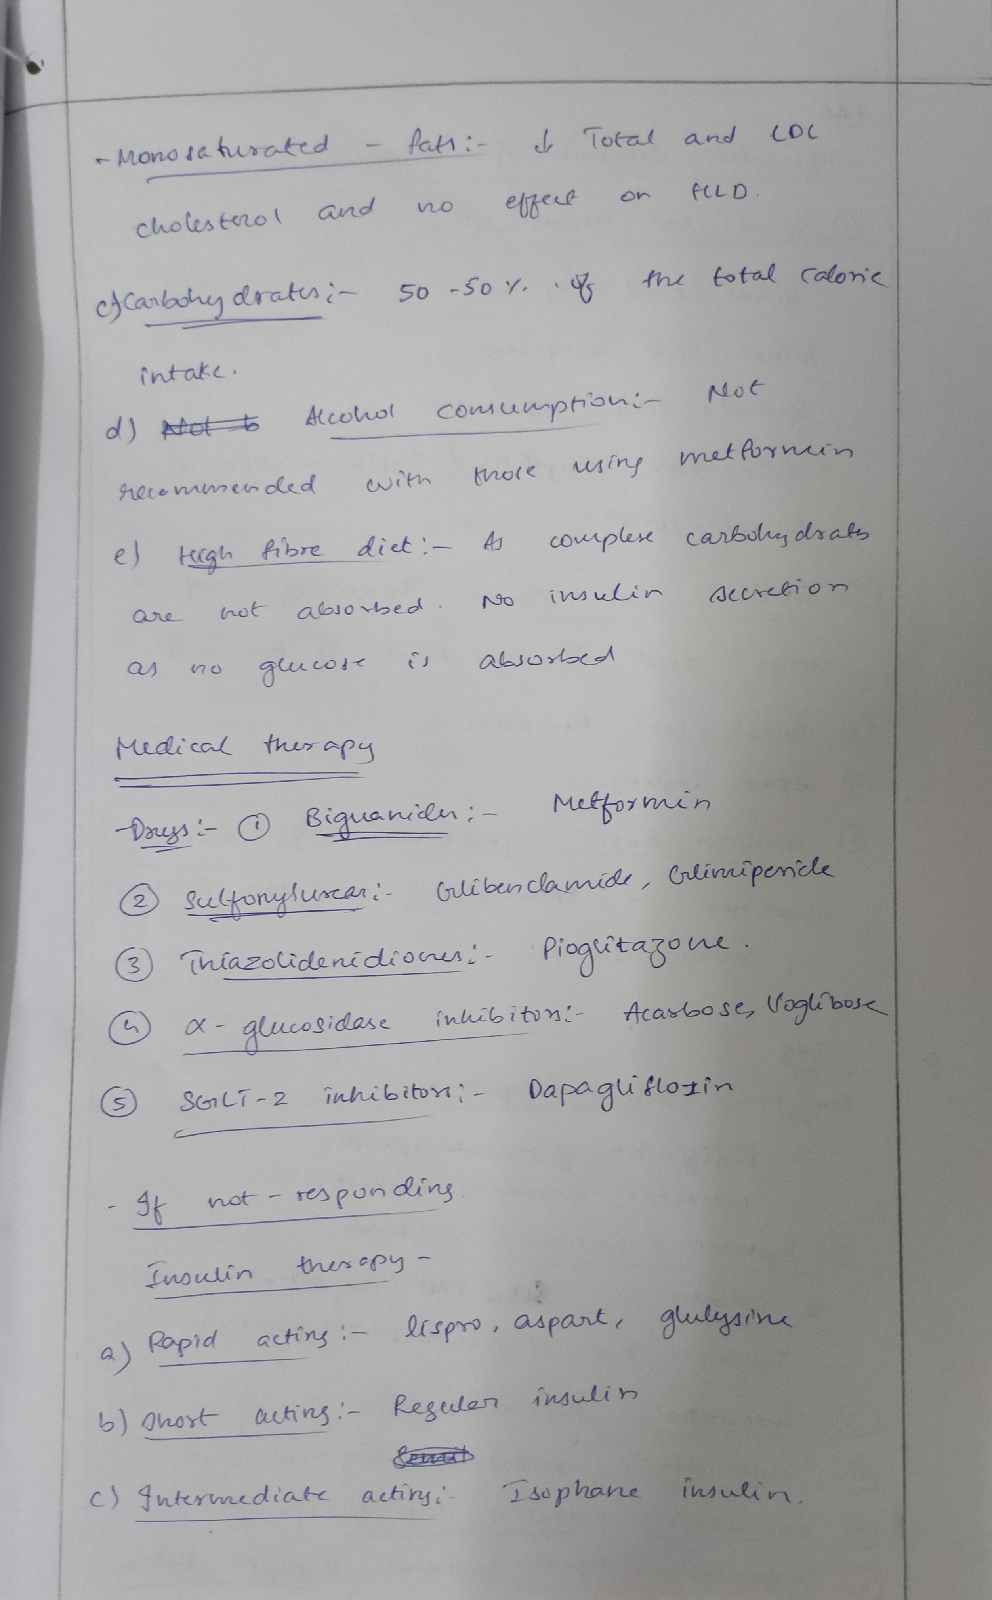 - Monosaturated - fats:- ↓ Total and LDL
cholesterol and no effect on HLD.
c) Carbohydrates:- 50-50% of the total calorie
intake.
d) Not to Alcohol consumption:- Not
recommended with those using metformin
e) High fibre diet:- As complex carbohydrates
are not absorbed. No insulin secretion
as no glucose is absorbed
Medical therapy
- Drugs:- ① Biguanides:- Metformin
② Sulfonylureas:- Glibenclamide, Glimiperide
③ Thiazolidenidiones:- Pioglitazone.
④ α-glucosidase inhibitors:- Acarbose, Voglibose
⑤ SGLT-2 inhibitors:- Dapagliflozin
- If not-responding
Insulin therapy -
a) Rapid acting:- lispro, aspart, glulysine
b) Short acting:- Regular insulin
c) Intermediate acting:- Isophane insulin.